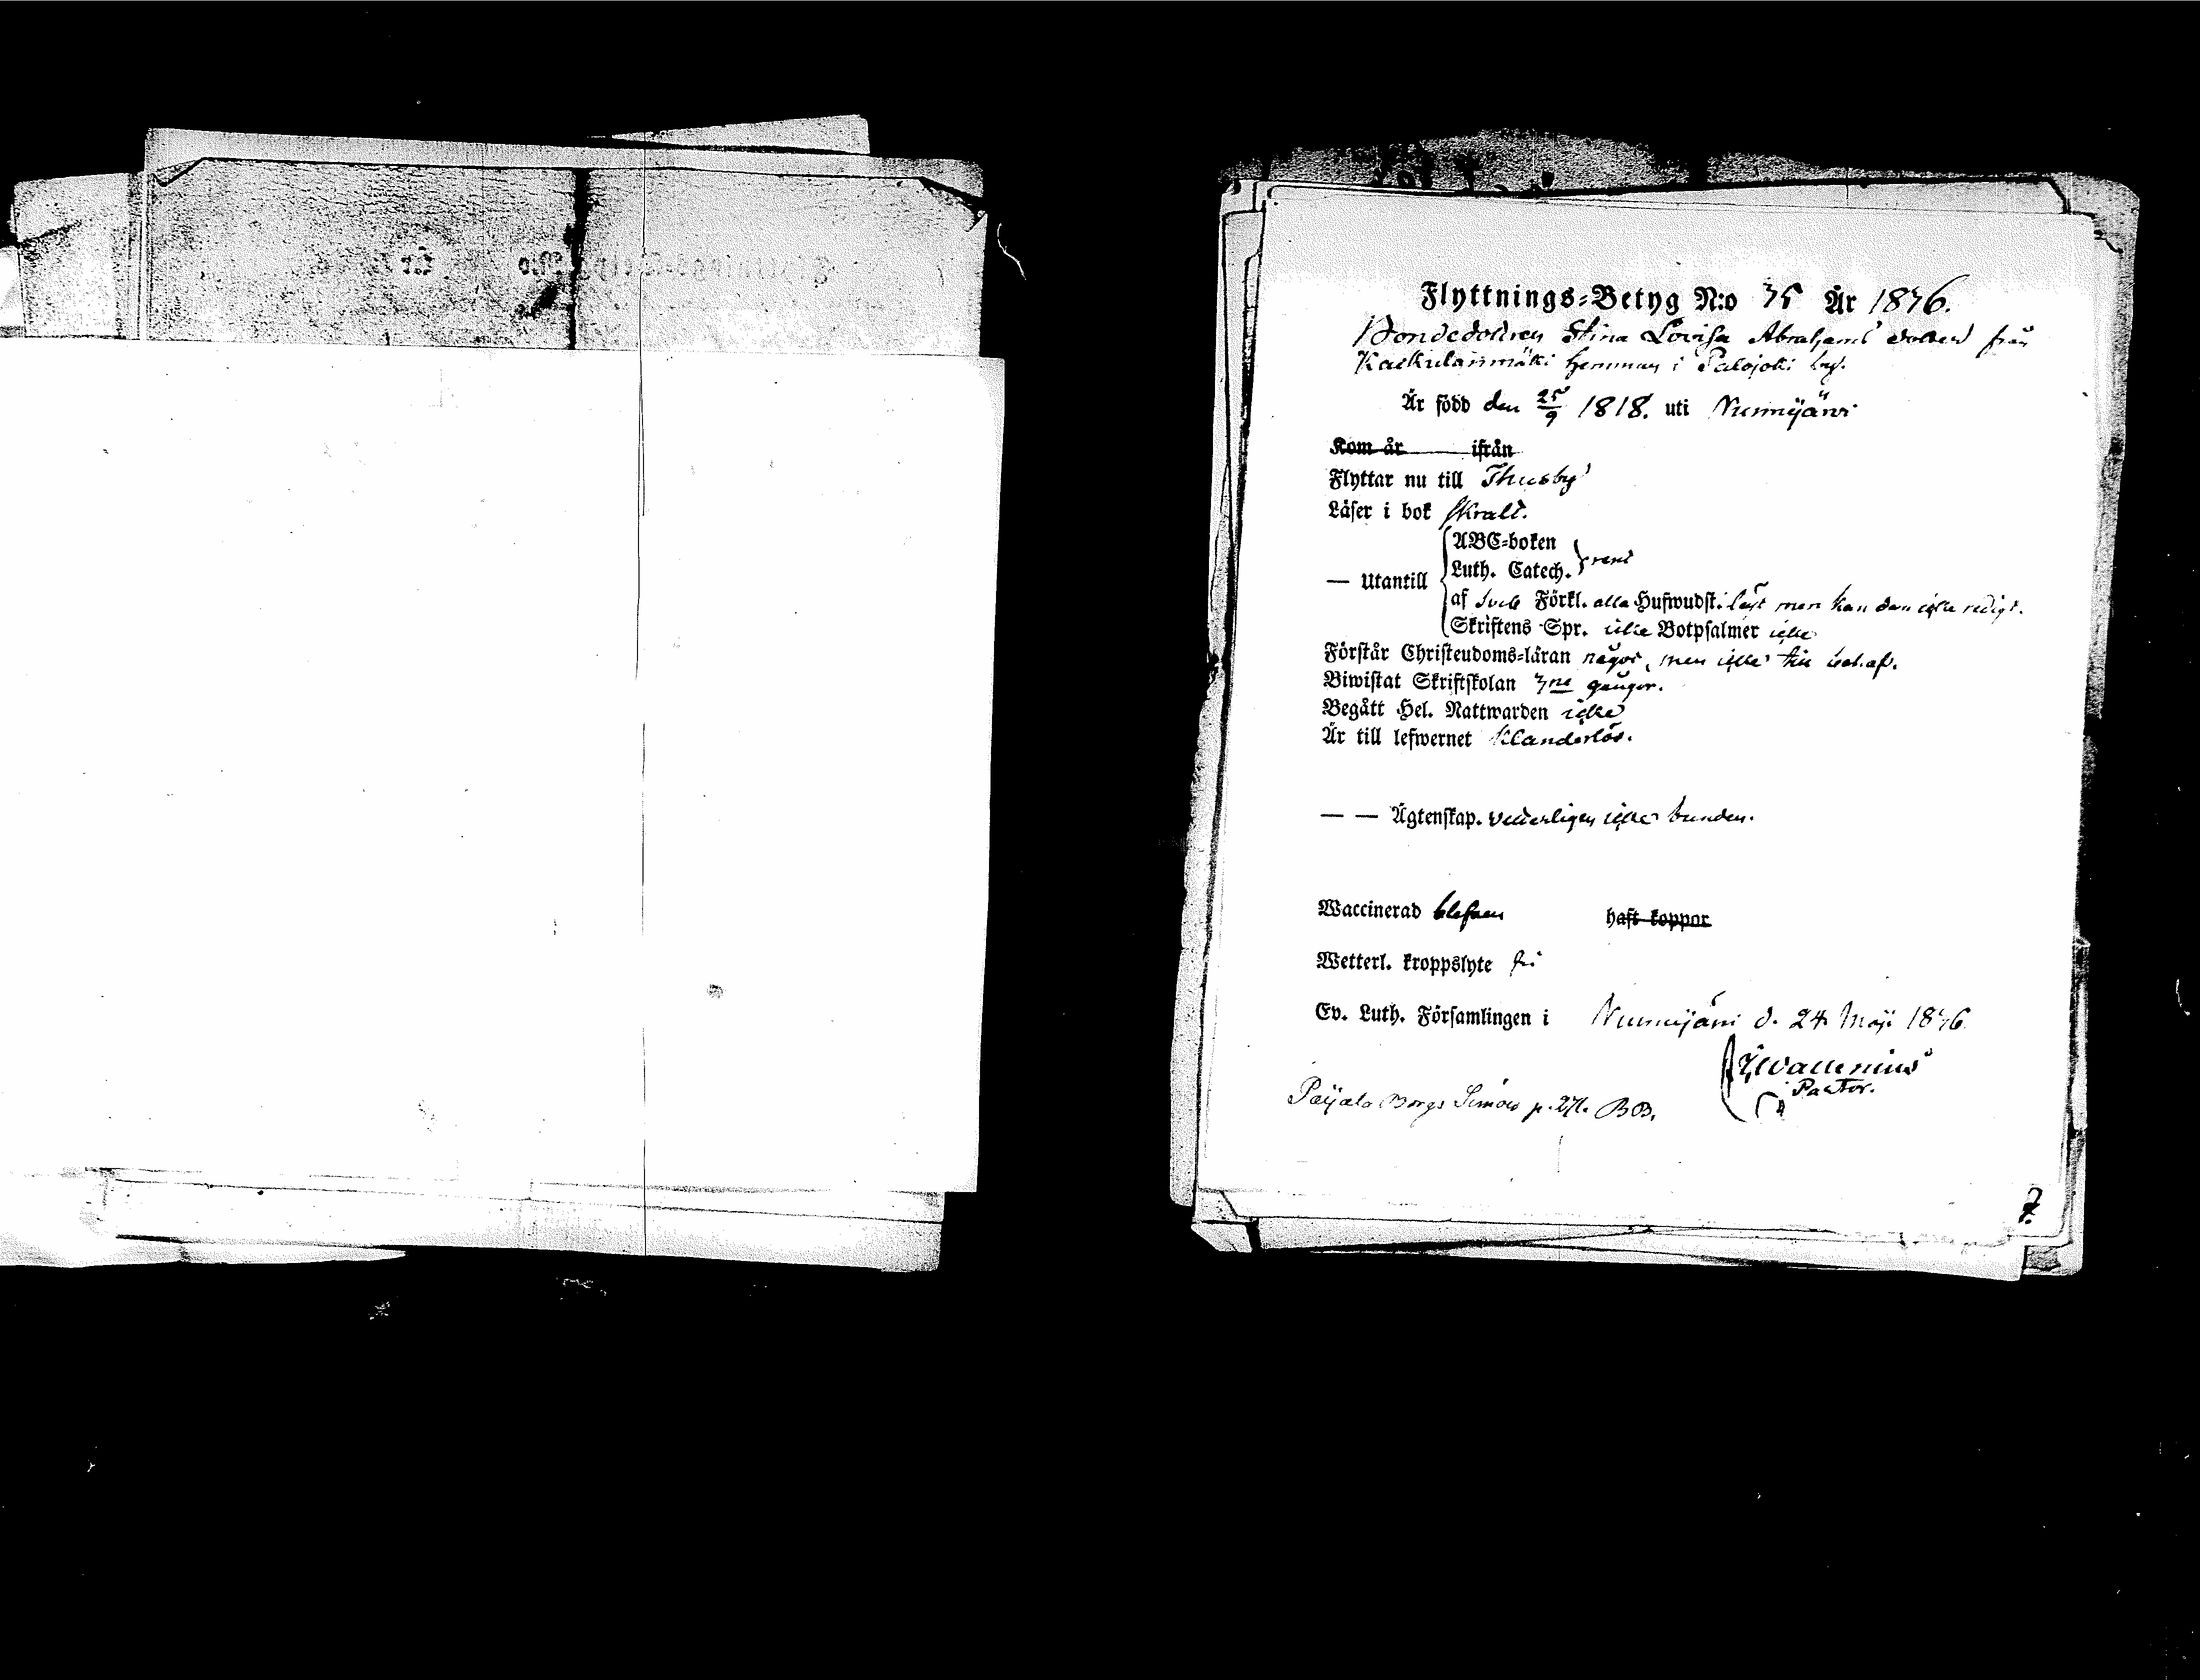 Flyttnings-Betyg N:o 35 År 1836.
Bondedottren Stina Lovisa Abrahams dotter från
Kaukulanmäki hemman i Palojoki by.
Är född den 25/9 1818. uti Nurmijärvi
Kom år ifrån
Flyttar nu till Thusby
Läser i bok skralt.
ABC-boken
Luth. Catech. rent
— Utantill
af Sveb Förkl. alla Hufwudst. läst men kan dem icke redigt.
Skriftens Spr. icke Botpsalmer icke
Förstår Christendoms-läran något, men icke till
Biwistat Skriftskolan 3ne gånger.
Begått Hel. Nattwarden icke
Är till lefwernet klanderlös.
— — Ägtenskap. veterligen icke bunden.
Waccinerad blefven haft koppor
Wetterl. kroppslyte fri
Ev. Luth. Församlingen i Nurmijärvi d. 24 Maji 1836
Wallenius
Pastor.
Paijala Borgs Simois p. 271. BB.
7.